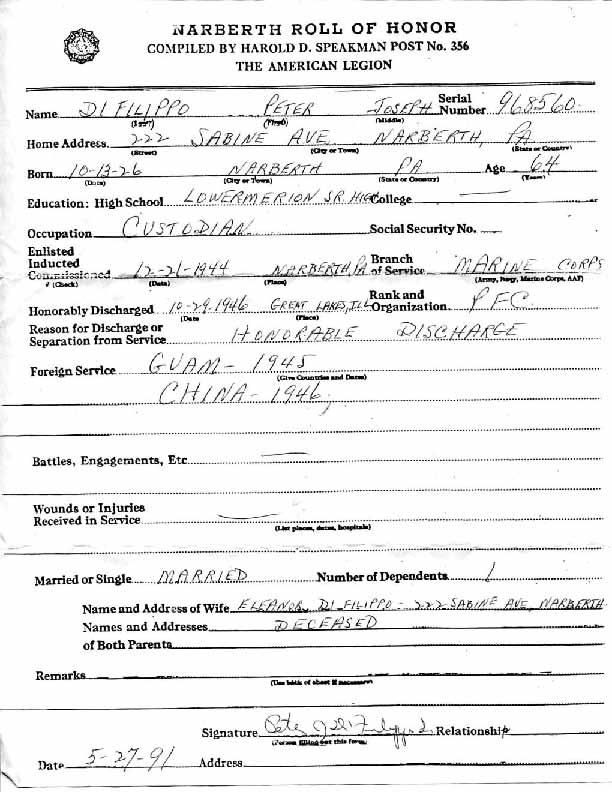 NARBERTH ROLL OF HONOR
COMPILED BY HAROLD D. SPEAKMAN POST No. 356
THE AMERICAN LEGION
Name DI FILIPPO PETER JOSEPH Serial Number 968560
(Last) (First) (Middle)
Home Address 222 SABINE AVE. NARBERTH, PA
(Street) (City or Town) (State or Country)
Born 10-13-26 NARBERTH PA Age 64
(Date) (City or Town) (State or Country) (Years)
Education: High School LOWER MERION SR. HIGH College
Occupation CUSTODIAN Social Security No.
Enlisted
Inducted
Commissioned 12-21-1944 NARBERTH, PA Branch of Service MARINE CORPS
# (Check) (Date) (Place) (Army, Navy, Marine Corps, AAF)
Honorably Discharged 10-29-1946 GREAT LAKES, ILL Rank and Organization PFC.
(Date (Place)
Reason for Discharge or
Separation from Service HONORABLE DISCHARGE
Foreign Service GUAM - 1945
(Give Countries and Dates)
CHINA - 1946
Battles, Engagements, Etc
Wounds or Injuries
Received in Service
(List places, dates, hospitals)
Married or Single MARRIED Number of Dependents 1
Name and Address of Wife ELEANOR DI FILIPPO - 222 SABINE AVE, NARBERTH
Names and Addresses DECEASED
of Both Parents
Remarks
(Use back of sheet if necessary)
Signature Relationship
(Person filling out this form)
Date 5-27-91 Address